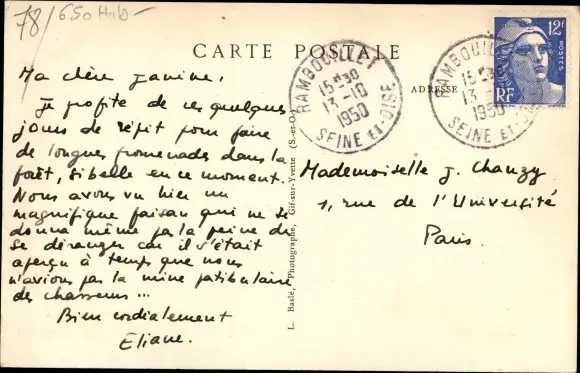 78/650 Hab-
CARTE POSTALE
12F
POSTES
RF
RAMBOUILLET
15H30
13-10
1950
SEINE ET-OISE
RAMBOUILLET
15H30
13-10
1950
SEINE ET-OISE
ADRESSE
Ma chère Janine,
Je profite de ces quelques
jours de répit pour faire
de longues promenades dans la
forêt, si belle en ce moment.
Nous avons vu hier un
magnifique faisan qui ne se
donna même pas la peine de
se déranger car il s'était
aperçu à temps que nous
n'avions pas la mine patibulaire
des chasseurs ...
Bien cordialement
Eliane.
L. Basle, Photographe, Gif-sur-Yvette (S.-et-O.)
Mademoiselle J. Chanzy
1, rue de l'Université
Paris.